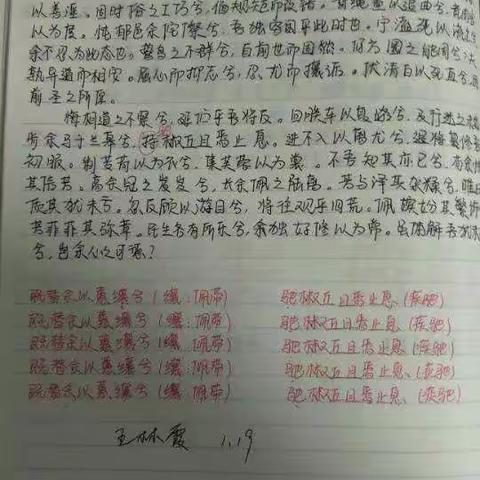 以善淫。固时俗之工巧兮，偭规矩而改错。背绳墨以追曲兮，竞周容
以为度。忳郁邑余侘傺兮，吾独穷困乎此时也。宁溘死以流亡兮
余不忍为此态也。鸷鸟之不群兮，自前世而固然。何方圜之能周兮，夫
孰异道而相安。屈心而抑志兮，忍尤而攘诟。伏清白以死直兮，固
前圣之所厚。
悔相道之不察兮，延伫乎吾将反。回朕车以复路兮，及行迷之未
步余马于兰皋兮，椒丘且焉止息。进不入以离尤兮，退将复修吾
初服。制芰荷以为衣兮，集芙蓉以为裳。不吾知其亦已兮，苟余情
其信芳。高余冠之岌岌兮，长余佩之陆离。芳与泽其杂糅兮，唯昭
质其犹未亏。忽反顾以游目兮，将往观乎四荒。佩缤纷其繁饰
芳菲菲其弥章。民生各有所乐兮，余独好修以为常。虽体解吾犹未
兮，岂余心之可惩？
既替余以蕙纕兮（纕：佩带） 驰椒丘且焉止息（疾驰）
既替余以蕙纕兮（纕：佩带） 驰椒丘且焉止息（疾驰）
既替余以蕙纕兮（纕：佩带） 驰椒丘且焉止息（疾驰）
既替余以蕙纕兮（纕：佩带） 驰椒丘且焉止息（疾驰）
既替余以蕙纕兮（纕：佩带） 驰椒丘且焉止息（疾驰）
王林霞 1.19